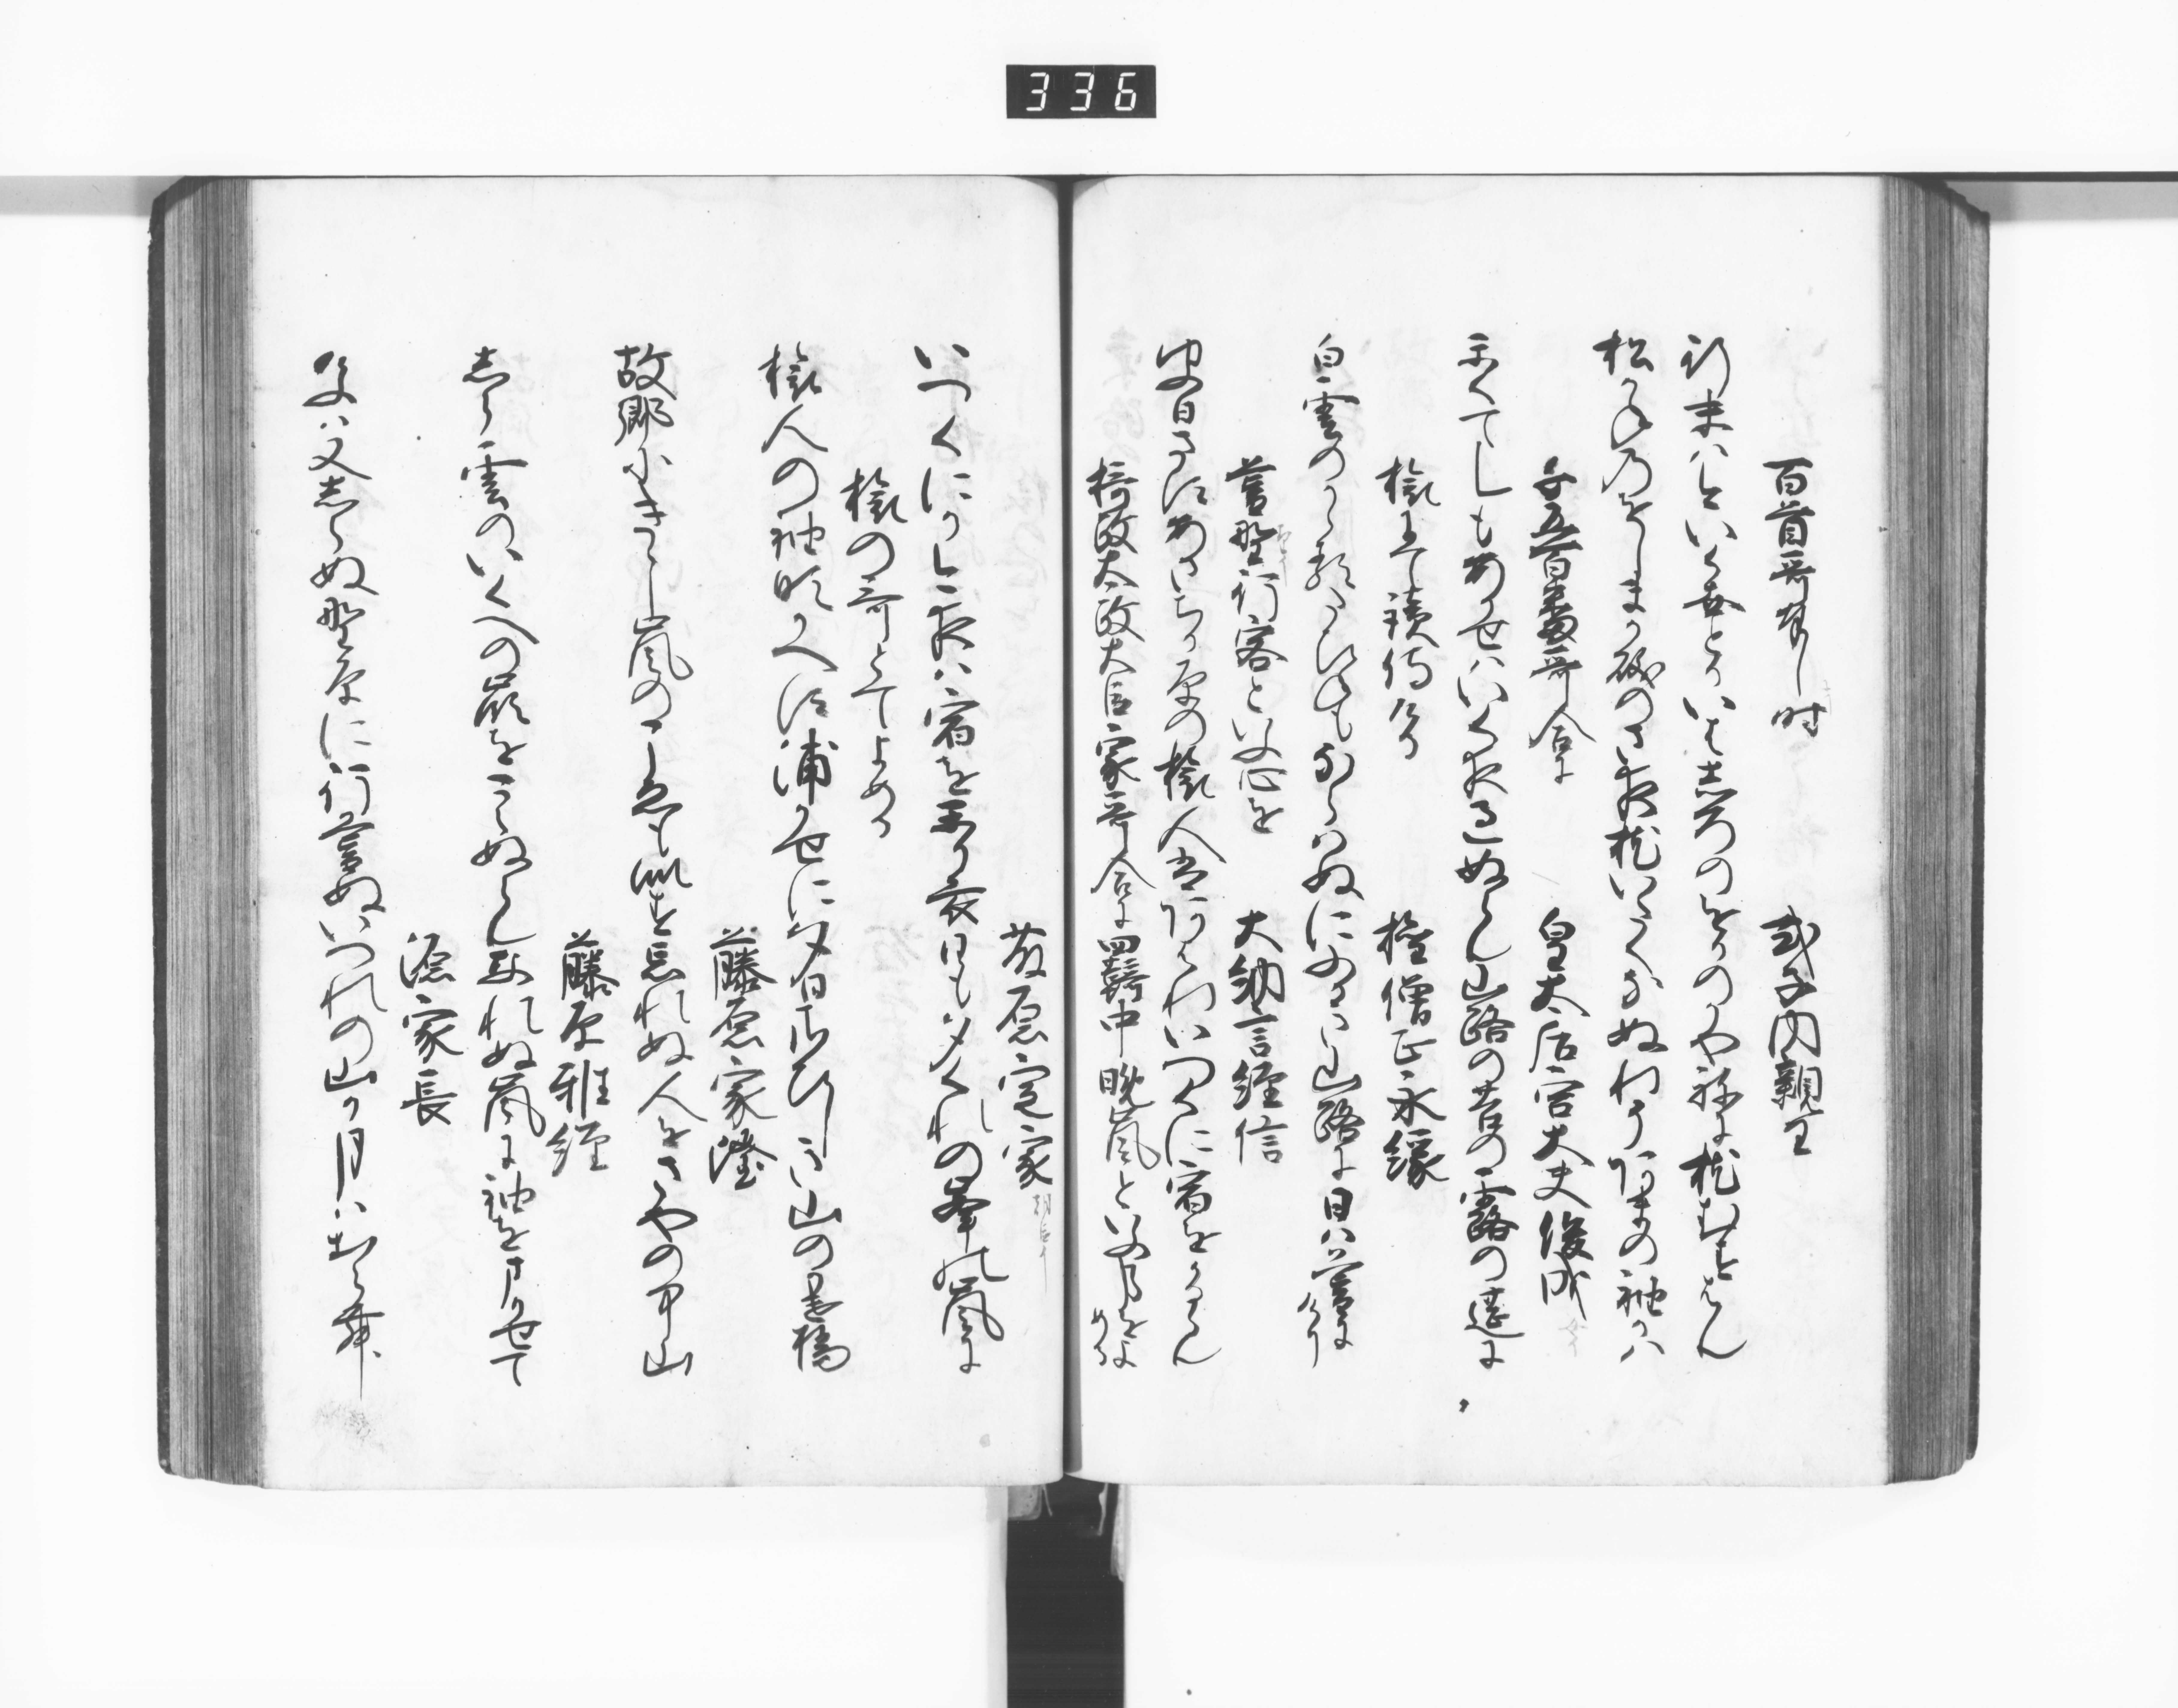 336
百首哥奉し時　式子内親王
行末はいまいく夜とかいはしろのをかのかやねに枕むすはん
松かねのをしまか磯のさ夜枕いたくなぬれそあまの袖かは
千五百番哥合に　皇太后宮大夫俊成
かくてしもあかせはいく夜過ぬらん山路の苔の露の莚に
旅にて読侍ける　権僧正永縁
白雲のかゝるたひねもならはぬにふかき山路に日は暮にけり
暮望行客といふ心を　大納言経信
夕日さすあさちか原の旅人はあはれいつくに宿をかるらん
摂政太政大臣家哥合に羈中晩嵐といふことをよめる
藤原定家
いつくにかこよひは宿をかり衣日も夕くれの峯の嵐に
旅の哥とてよめる
旅人の袖吹かへす秋かせに夕日さひしき山の梯
故郷にきゝし嵐のこゑも似す忘れぬ人をさやの中山
藤原家隆
藤原雅経
しら雲のいくへの峯をこえぬらんなれぬ嵐に袖をまかせて
源家長
けふは又しらぬ野原に行暮ぬいつれの山か月はいつらむ